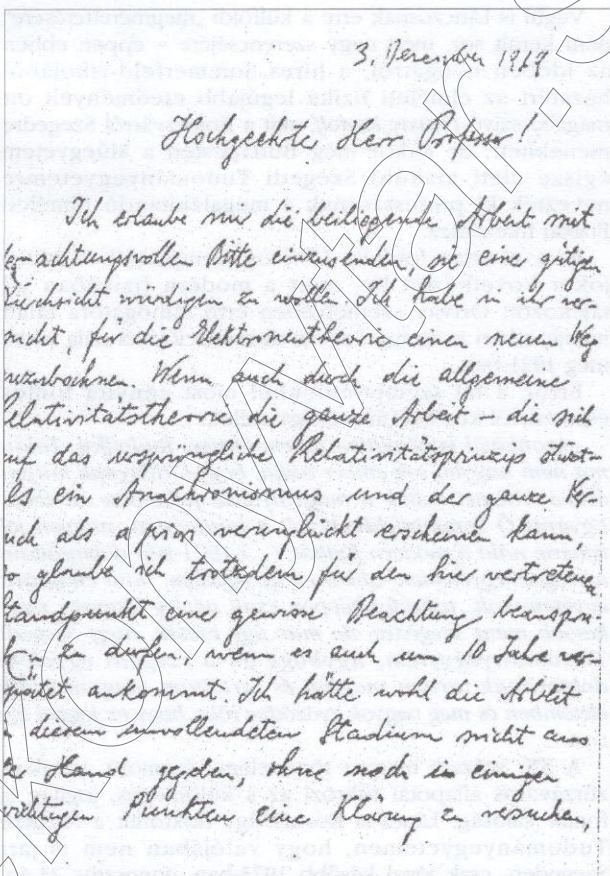 3. Dezember 1919
Hochgeehrter Herr Professor!
Ich erlaube mir die beiliegende Arbeit mit
der achtungsvollen Bitte einzusenden, sie eine gütige
Durchsicht würdigen zu wollen. Ich habe in ihr ver-
sucht, für die Elektronentheorie einen neuen Weg
anzubahnen. Wenn auch durch die allgemeine
Relativitätstheorie die ganze Arbeit – die sich
auf das ursprüngliche Relativitätsprinzip stützt –
als ein Anachronismus und der ganze Ver-
such als a priori verunglückt erscheinen kann,
so glaube ich trotzdem für den hier vertretenen
Standpunkt eine gewisse Beachtung beanspru-
zu dürfen, wenn es auch um 10 Jahre ver-
spätet ankommt. Ich hätte wohl die Arbeit
in diesem unvollendeten Stadium nicht aus
der Hand gegeben ohne noch in einigen
wichtigen Punkten eine Klärung zu versuchen,